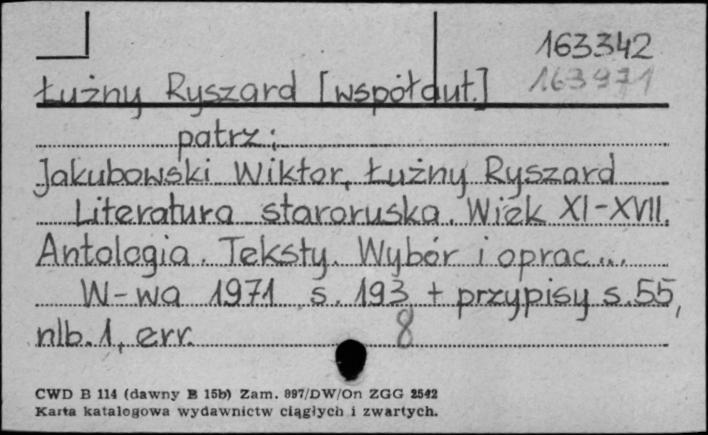 163342
163971
Łużny Ryszard [współaut.]
patrz:
Jakubowski Wiktor, Łużny Ryszard
Literatura staroruska. Wiek XI-XVII.
Antologia. Teksty. Wybór i oprac...
W-wa 1971 s. 193 + przypisy s. 55,
nlb. 1, err. 8
CWD B 114 (dawny B 15b) Zam. 997/DW/On ZGG 2542
Karta katalogowa wydawnictw ciągłych i zwartych.